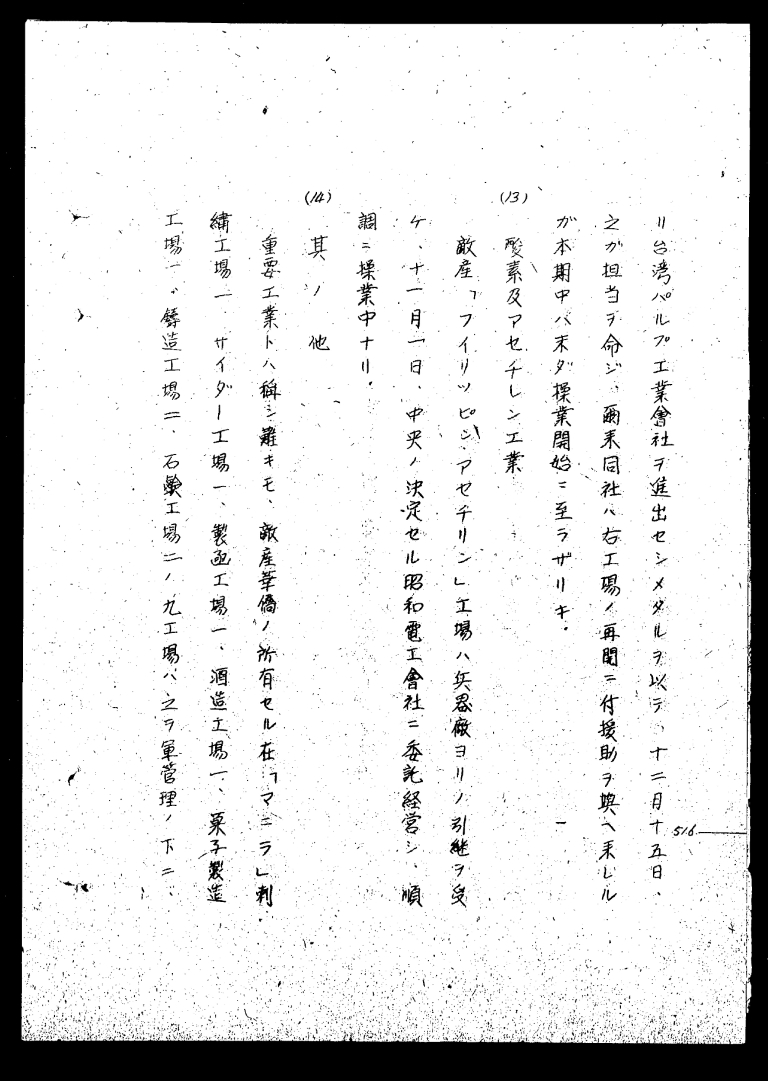 リ台湾パルプ工業會社ヲ進出セシメタルヲ以テ、十二月十五日、
之ガ担当ヲ命ジ、爾来同社ハ右工場ノ再開ニ付援助ヲ與ヘ来レル
ガ本期中ハ未ダ操業開始ニ至ラザリキ。
(13)
酸素及アセチレン工業
敵産「フイリッピン、アセチリン」工場ハ兵器廠ヨリノ引継ヲ受
ケ、十一月一日、中央ノ決定セル昭和電工會社ニ委託経営シ、順
調ニ操業中ナリ。
(14)
其ノ他
重要工業トハ稱シ難キモ、敵産華僑ノ所有セル在「マニラ」刺
繍工場一、サイダー工場一、製函工場一、酒造工場一、菓子製造
工場一、鋳造工場二、石鹸工場二ノ九工場ハ之ヲ軍管理ノ下ニ、
516